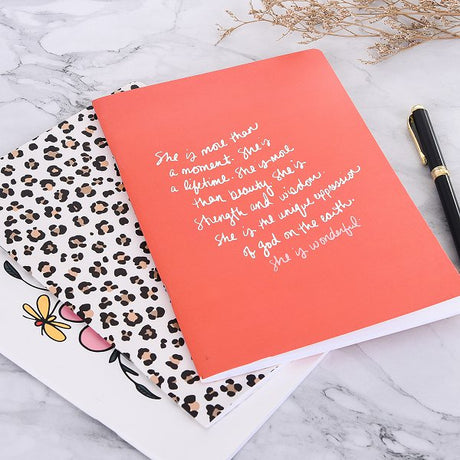 She is more than
a moment. She is
a lifetime. She is more
than beauty she is.
Strength and wisdom.
She is the unique oppression
of god on the earth.
She is wonderful